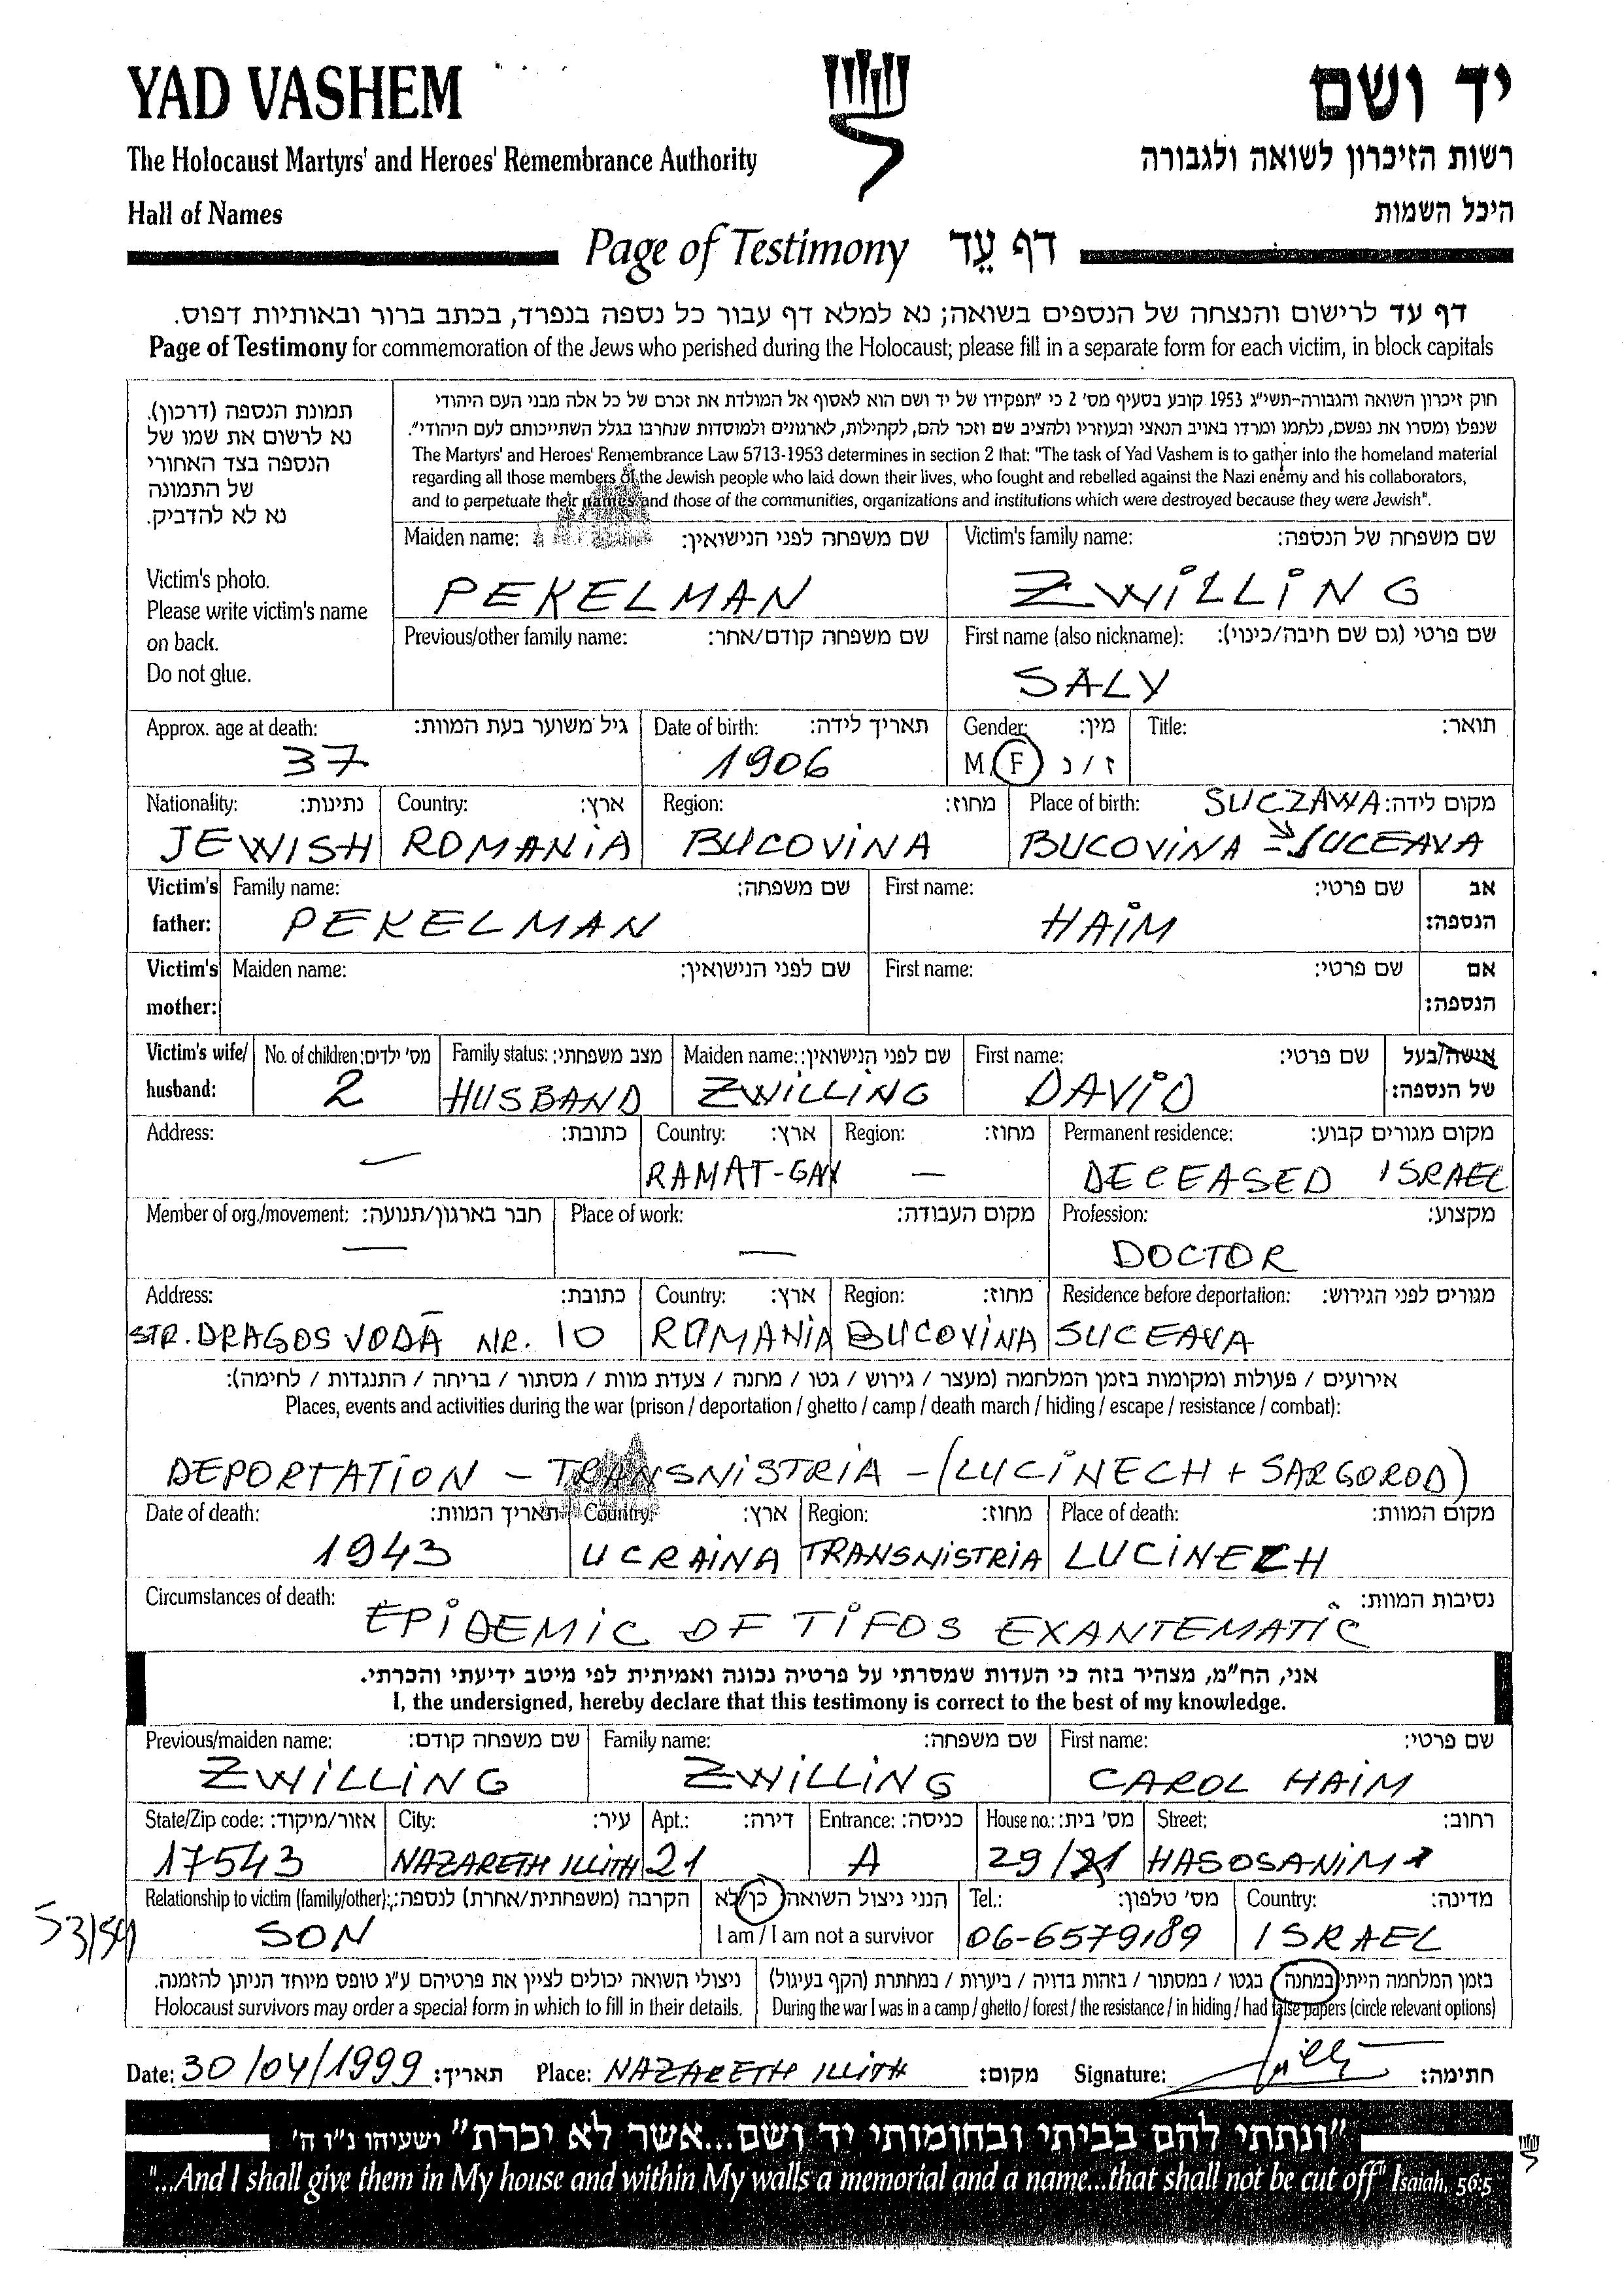 YAD VASHEM
יד ושם
The Holocaust Martyrs' and Heroes' Remembrance Authority
רשות הזיכרון לשואה ולגבורה
Hall of Names
היכל השמות
Page of Testimony דף עֵד
דף עד לרישום והנצחה של הנספים בשואה; נא למלא דף עבור כל נספה בנפרד, בכתב ברור ובאותיות דפוס.
Page of Testimony for commemoration of the Jews who perished during the Holocaust; please fill in a separate form for each victim, in block capitals
תמונת הנספה (דרכון).
נא לרשום את שמו של
הנספה בצד האחורי
של התמונה
נא לא להדביק.
Victim's photo.
Please write victim's name
on back.
Do not glue.
חוק זיכרון השואה והגבורה-תשי"ג 1953 קובע בסעיף מס' 2 כי "תפקידו של יד ושם הוא לאסוף אל המולדת את זכרם של כל אלה מבני העם היהודי
שנפלו ומסרו את נפשם, נלחמו ומרדו באויב הנאצי ובעוזריו ולהציב שם וזכר להם, לקהילות, לארגונים ולמוסדות שנחרבו בגלל השתייכותם לעם היהודי".
The Martyrs' and Heroes' Remembrance Law 5713-1953 determines in section 2 that: "The task of Yad Vashem is to gather into the homeland material
regarding all those members of the Jewish people who laid down their lives, who fought and rebelled against the Nazi enemy and his collaborators,
and to perpetuate their names and those of the communities, organizations and institutions which were destroyed because they were Jewish".
Maiden name: שם משפחה לפני הנישואין: Victim's family name: שם משפחה של הנספה:
PEKELMAN ZWILLING
Previous/other family name: שם משפחה קודם/אחר: First name (also nickname): שם פרטי (גם שם חיבה/כינוי):
SALY
Approx. age at death: גיל משוער בעת המוות: Date of birth: תאריך לידה: Gender: מין: Title: תואר:
37 1906 M/F ז/נ
Nationality: נתינות: Country: ארץ: Region: מחוז: Place of birth: SUCZAWA מקום לידה:
JEWISH ROMANIA BUCOVINA BUCOVINA - SUCEAVA
Victim's father: Family name: שם משפחה: First name: שם פרטי: אב הנספה:
PEKELMAN HAIM
Victim's mother: Maiden name: שם לפני הנישואין: First name: שם פרטי: אם הנספה:
Victim's wife/ husband: No. of children: מס' ילדים: Family status: מצב משפחתי: Maiden name: שם לפני הנישואין: First name: שם פרטי: אישה/בעל של הנספה:
2 HUSBAND ZWILLING DAVID
Address: כתובת: Country: ארץ: Region: מחוז: Permanent residence: מקום מגורים קבוע:
— RAMAT-GAN — DECEASED ISRAEL
Member of org./movement: חבר בארגון/תנועה: Place of work: מקום העבודה: Profession: מקצוע:
— — DOCTOR
Address: כתובת: Country: ארץ: Region: מחוז: Residence before deportation: מגורים לפני הגירוש:
STR. DRAGOS VODĂ NR. 10 ROMANIA BUCOVINA SUCEAVA
אירועים / פעולות ומקומות בזמן המלחמה (מעצר / גירוש / גטו / מחנה / צעדת מוות / מסתור / בריחה / התנגדות / לחימה):
Places, events and activities during the war (prison / deportation / ghetto / camp / death march / hiding / escape / resistance / combat):
DEPORTATION - TRANSNISTRIA - (LUCINECH + SARGOROD)
Date of death: תאריך המוות: Country: ארץ: Region: מחוז: Place of death: מקום המוות:
1943 UCRAINA TRANSNISTRIA LUCINECH
Circumstances of death: נסיבות המוות:
EPIDEMIC OF TIFOS EXANTEMATIC
אני, הח"מ, מצהיר בזה כי העדות שמסרתי על פרטיה נכונה ואמיתית לפי מיטב ידיעתי והכרתי.
I, the undersigned, hereby declare that this testimony is correct to the best of my knowledge.
Previous/maiden name: שם משפחה קודם: Family name: שם משפחה: First name: שם פרטי:
ZWILLING ZWILLING CAROL HAIM
State/Zip code: אזור/מיקוד: City: עיר: Apt.: דירה: Entrance: כניסה: House no.: מס' בית: Street: רחוב:
17543 NAZARETH ILLITH 21 A 29/21 HASOSANIM
Relationship to victim (family/other): הקרבה (משפחתית/אחרת) לנספה: הנני ניצול השואה כן/לא Tel.: מס' טלפון: Country: מדינה:
53/54 SON I am / I am not a survivor 06-6579189 ISRAEL
ניצולי השואה יכולים לציין את פרטיהם ע"ג טופס מיוחד הניתן להזמנה.
Holocaust survivors may order a special form in which to fill in their details.
בזמן המלחמה הייתי במחנה / בגטו / במסתור / בזהות בדויה / ביערות / במחתרת (הקף בעיגול)
During the war I was in a camp / ghetto / forest / the resistance / in hiding / had false papers (circle relevant options)
Date: 30/04/1999 תאריך: Place: NAZARETH ILLITH מקום: Signature: חתימה:
"ונתתי להם בביתי ובחומותי יד ושם...אשר לא יכרת" ישעיהו נ"ו ה'
"...And I shall give them in My house and within My walls a memorial and a name...that shall not be cut off" Isaiah, 56:5